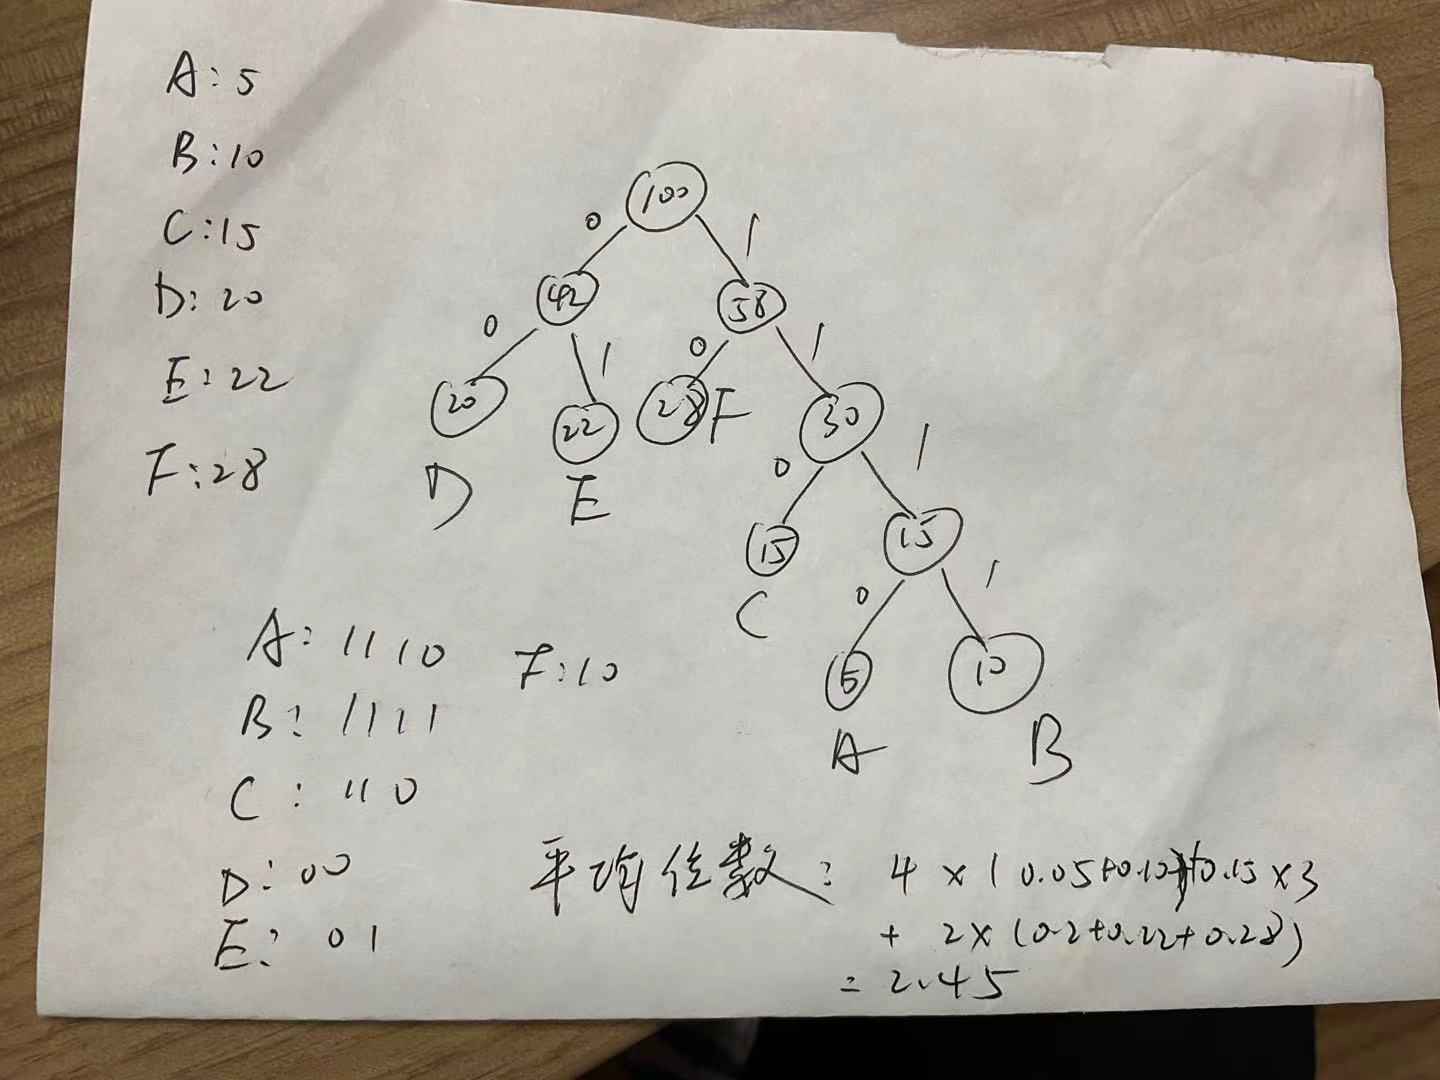 A:5
B:10
C:15
D:20
E:22
F:28
100
0 1
42 58
0 1 0 1
20 22 28 F 30
D E
0 1
15 15
C
0 1
5 10
A B
A:1110 F:10
B:1111
C:110
D:00
E:01
平均位数: 4×(0.05+0.10)+0.15×3
+ 2×(0.2+0.22+0.28)
=2.45